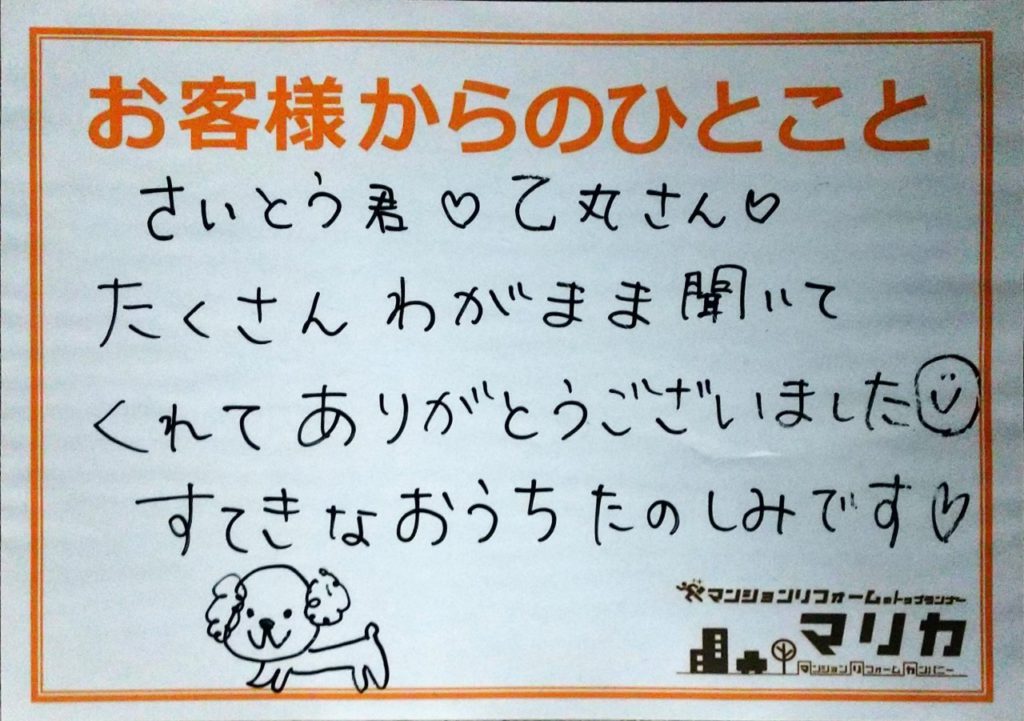 お客様からのひとこと
さいとう君♡乙丸さん♡
たくさんわがまま聞いて
くれてありがとうございました
すてきなおうちたのしみです♡
マンションリフォームのトップランナー
マリカ
マンションリフォームカンパニー